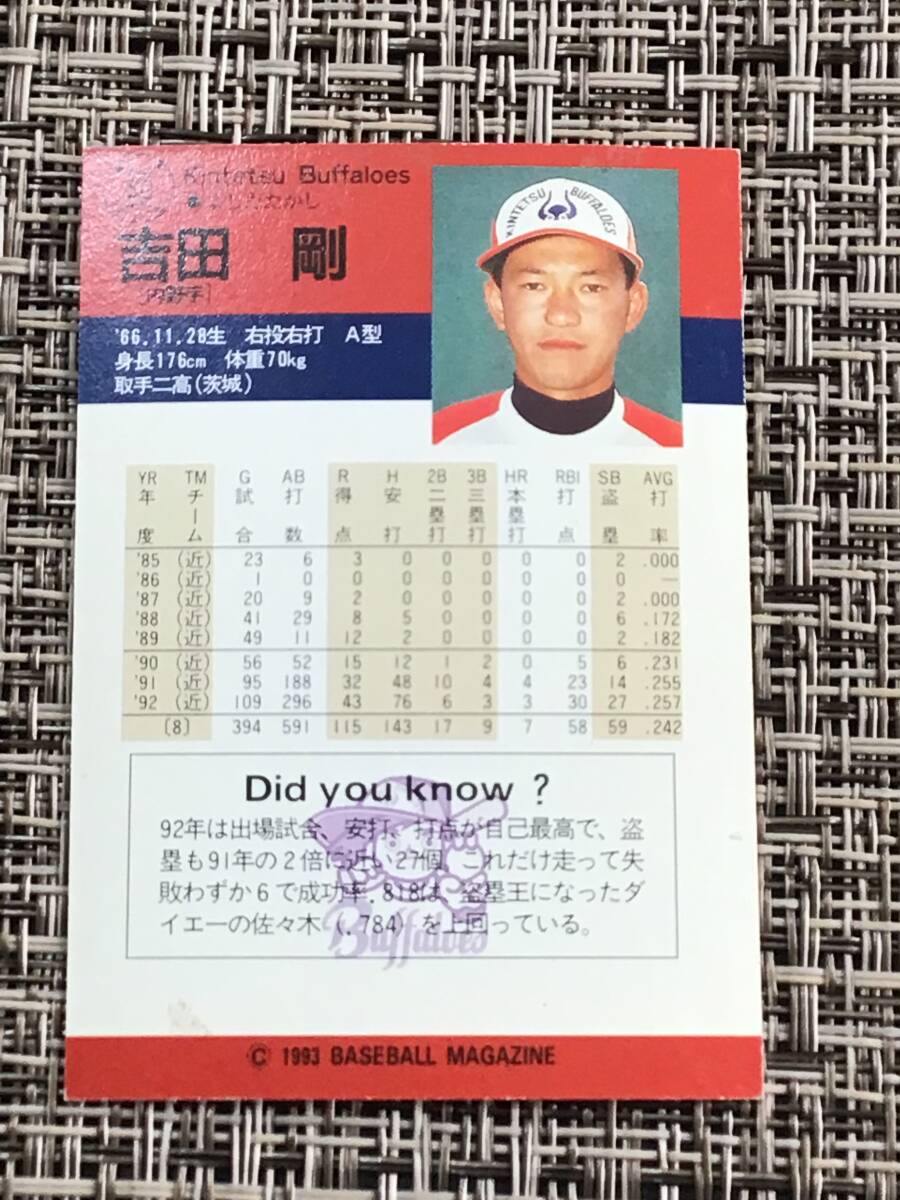 Kintetsu Buffaloes
よしだたかし
吉田 剛
[内野手]
KINTETSU BUFFALOES
'66.11.28生 右投右打 A型
身長176cm 体重70kg
取手二高(茨城)
YR TM G AB R H 2B 3B HR RBI SB AVG
年度 チーム 試合 打数 得点 安打 二塁打 三塁打 本塁打 打点 盗塁 打率
'85 (近) 23 6 3 0 0 0 0 0 2 .000
'86 (近) 1 0 0 0 0 0 0 0 0 —
'87 (近) 20 9 2 0 0 0 0 0 2 .000
'88 (近) 41 29 8 5 0 0 0 0 6 .172
'89 (近) 49 11 12 2 0 0 0 0 2 .182
'90 (近) 56 52 15 12 1 2 0 5 6 .231
'91 (近) 95 188 32 48 10 4 4 23 14 .255
'92 (近) 109 296 43 76 6 3 3 30 27 .257
[8] 394 591 115 143 17 9 7 58 59 .242
Did you know ?
92年は出場試合、安打、打点が自己最高で、盗
塁も91年の2倍に近い27個。これだけ走って失
敗わずか6で成功率.818は、盗塁王になったダ
イエーの佐々木(.784)を上回っている。
Buffaloes
© 1993 BASEBALL MAGAZINE